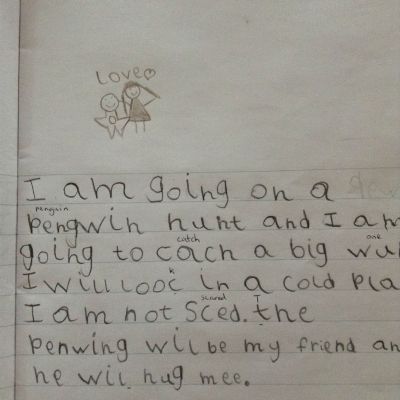 Love
I am going on a
penguin
pengwin hunt and I am
catch one
going to cach a big wu
k
I will looc in a cold pla
scared T
I am not sced. the
penwing wil be my friend an
he wil hug mee.